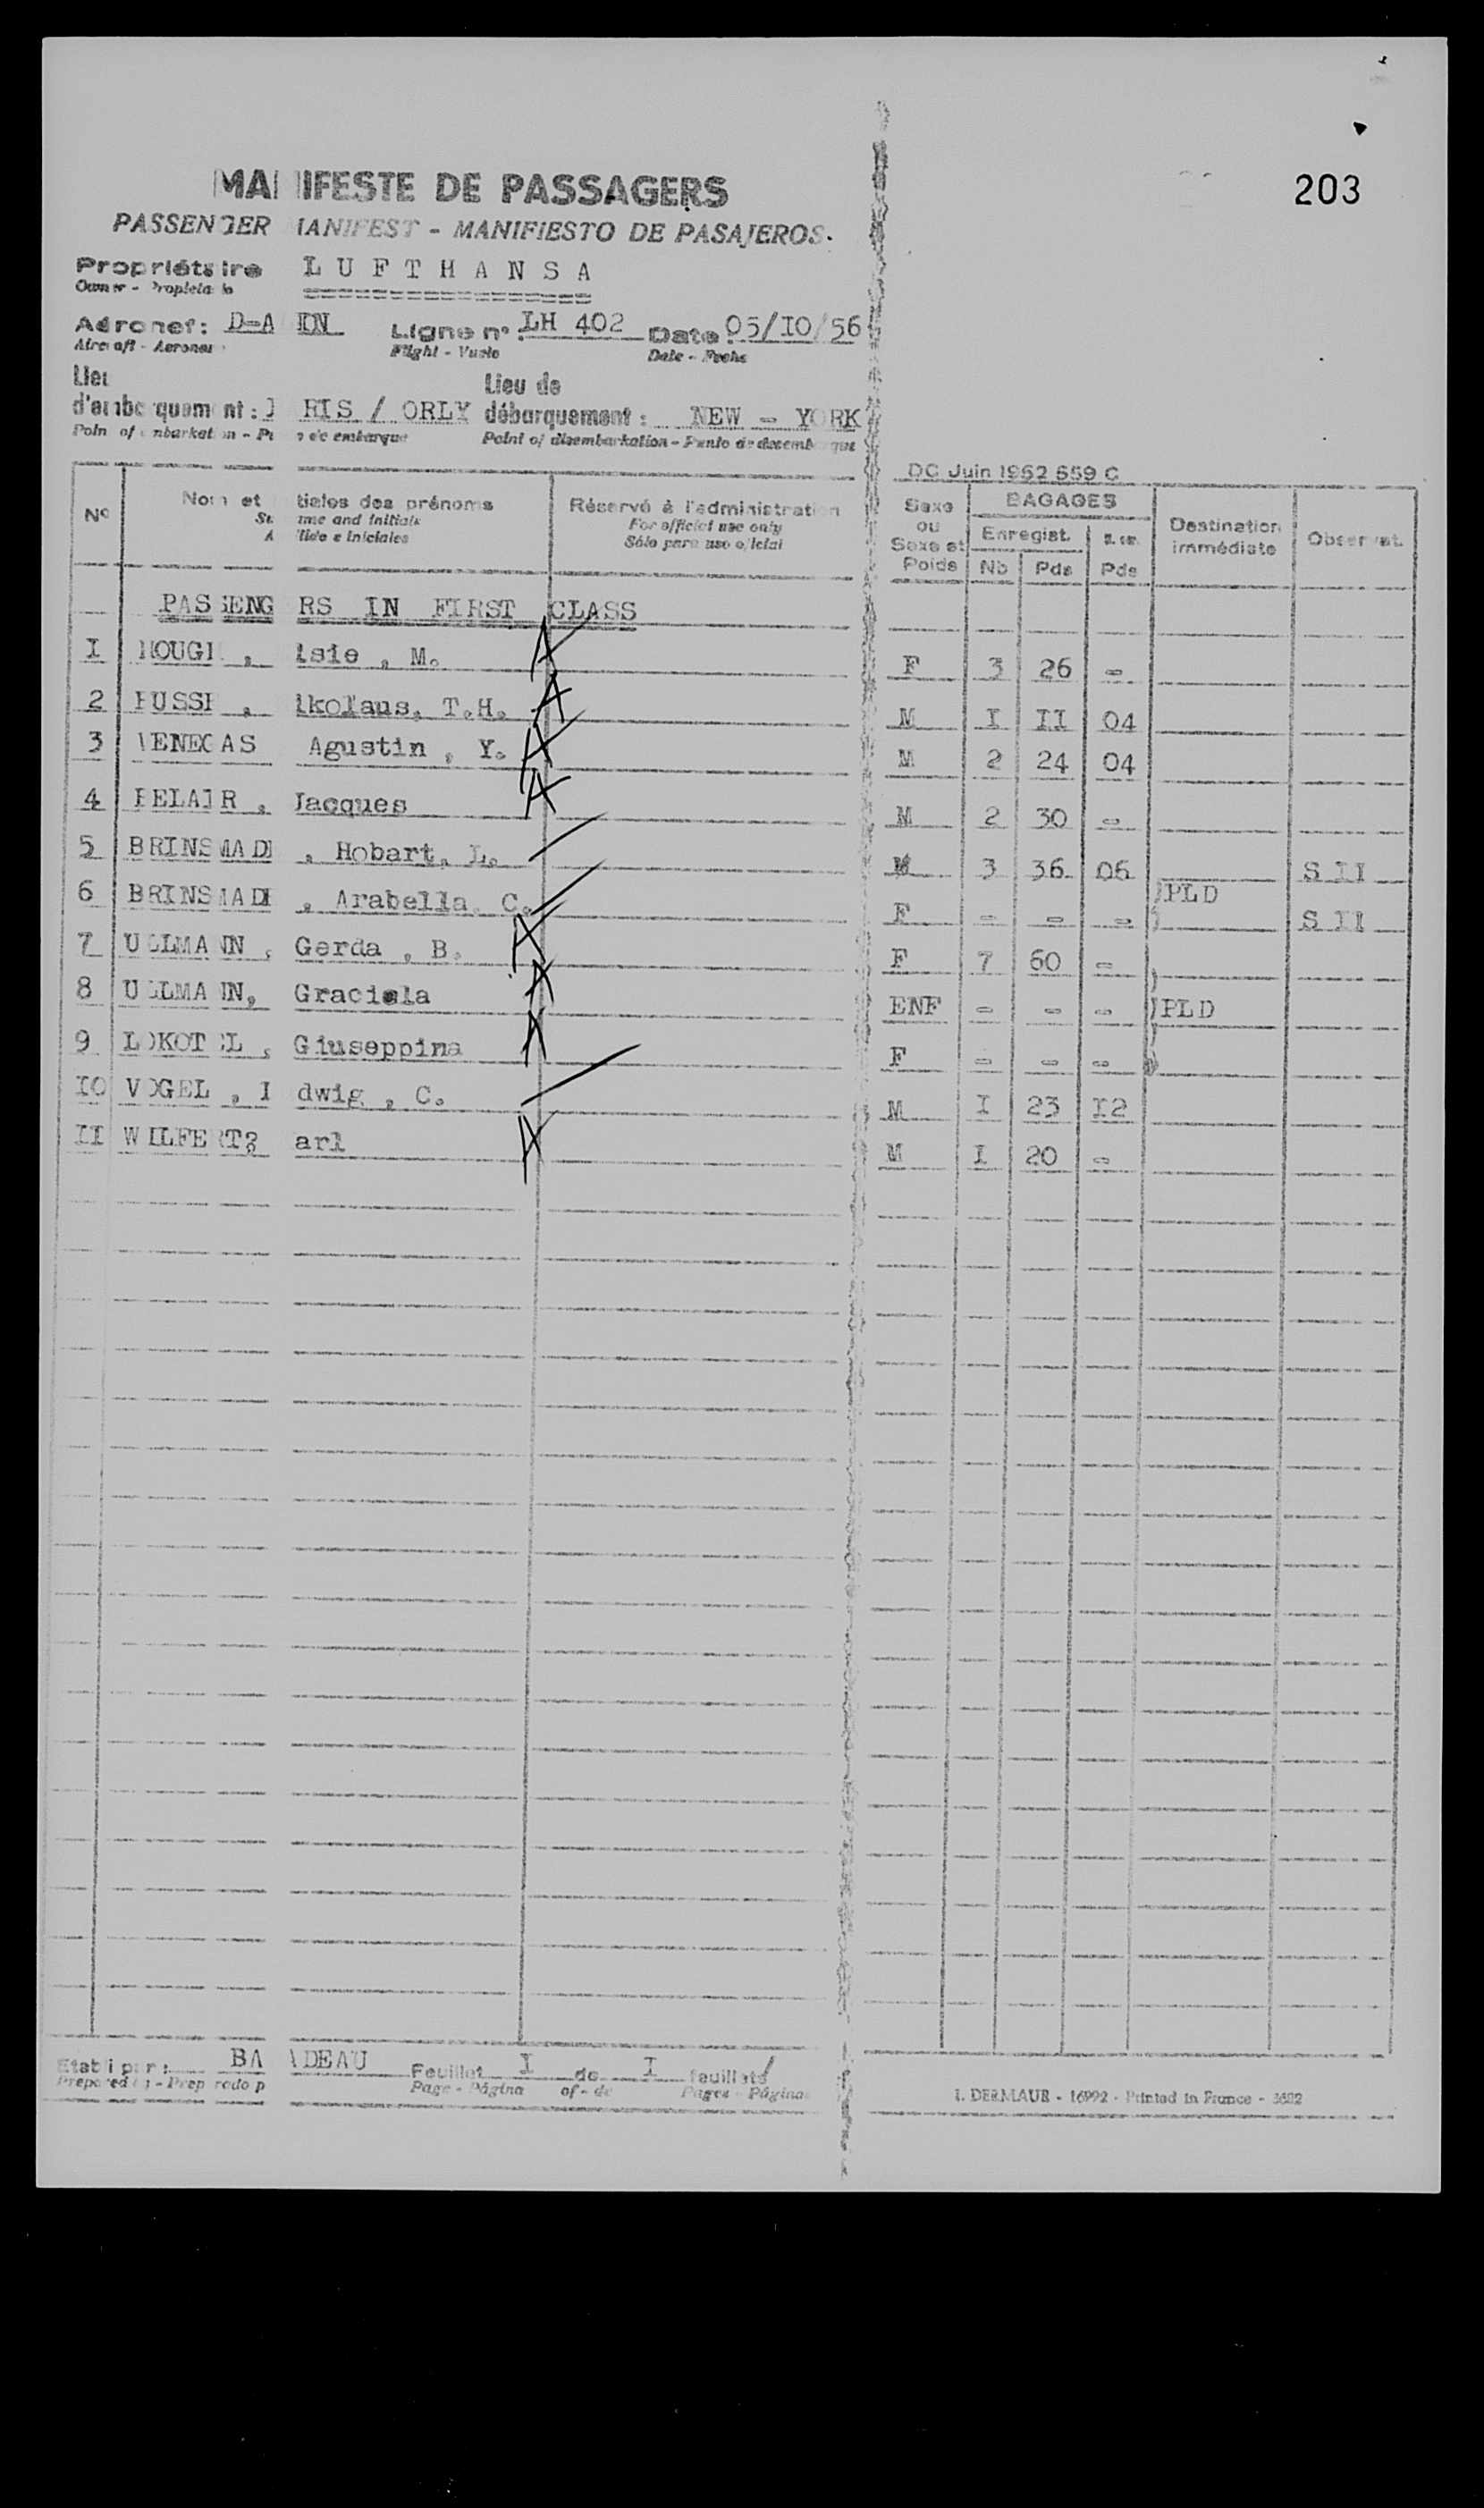 203
MA IFESTE DE PASSAGERS
PASSENGER MANIFEST - MANIFIESTO DE PASAJEROS.
Propriétaire LUFTHANSA
Owner - Propietario
Aéronef: D-A IN Ligne n° LH 402 Date: 05/IO/56
Aircraft - Aeronave Flight - Vuelo Date - Fecha
Lieu Lieu de
d'embarquement : RIS / ORLY débarquement : NEW - YORK
Point of embarkation - de embarque Point of disembarkation - Punto de desembarque
DC Juin 1952 559 C
N° Nom et tiales des prénoms Réservé à l'administration Sexe ou Sexe et Poids BAGAGES Destination immédiate Observat.
Su me and initials For official use only Enregist.
A llido e iniciales Sólo para uso oficial Nb Pds Pds
PASSENG RS IN FIRST CLASS
I HOUGH , lsie , M. F 3 26 -
2 lkolaus, T.H. M I II 04
3 VENEGAS Agustin , Y. M 2 24 04
4 BELAIR , Jacques M 2 30 -
5 BRINSMADE , Hobart, L. M 3 36 06 S II
6 BRINSMADE , Arabella, C. F - - - )PLD S II
7 ULLMANN , Gerda , B. F 7 60 -
8 ULLMANN, Graciela ENF - - - )PLD
9 Giuseppina F - - -
IO VOGEL , dwig , C. M I 23 I2
II WILFERT arl M I 20 -
Etabli par : BA ADEAU Feuillet I de I feuillets
Prepared by - Prep rado p Page - Página of - de Pages - Páginas
I. DERMAUR - 16992 - Printed in France -